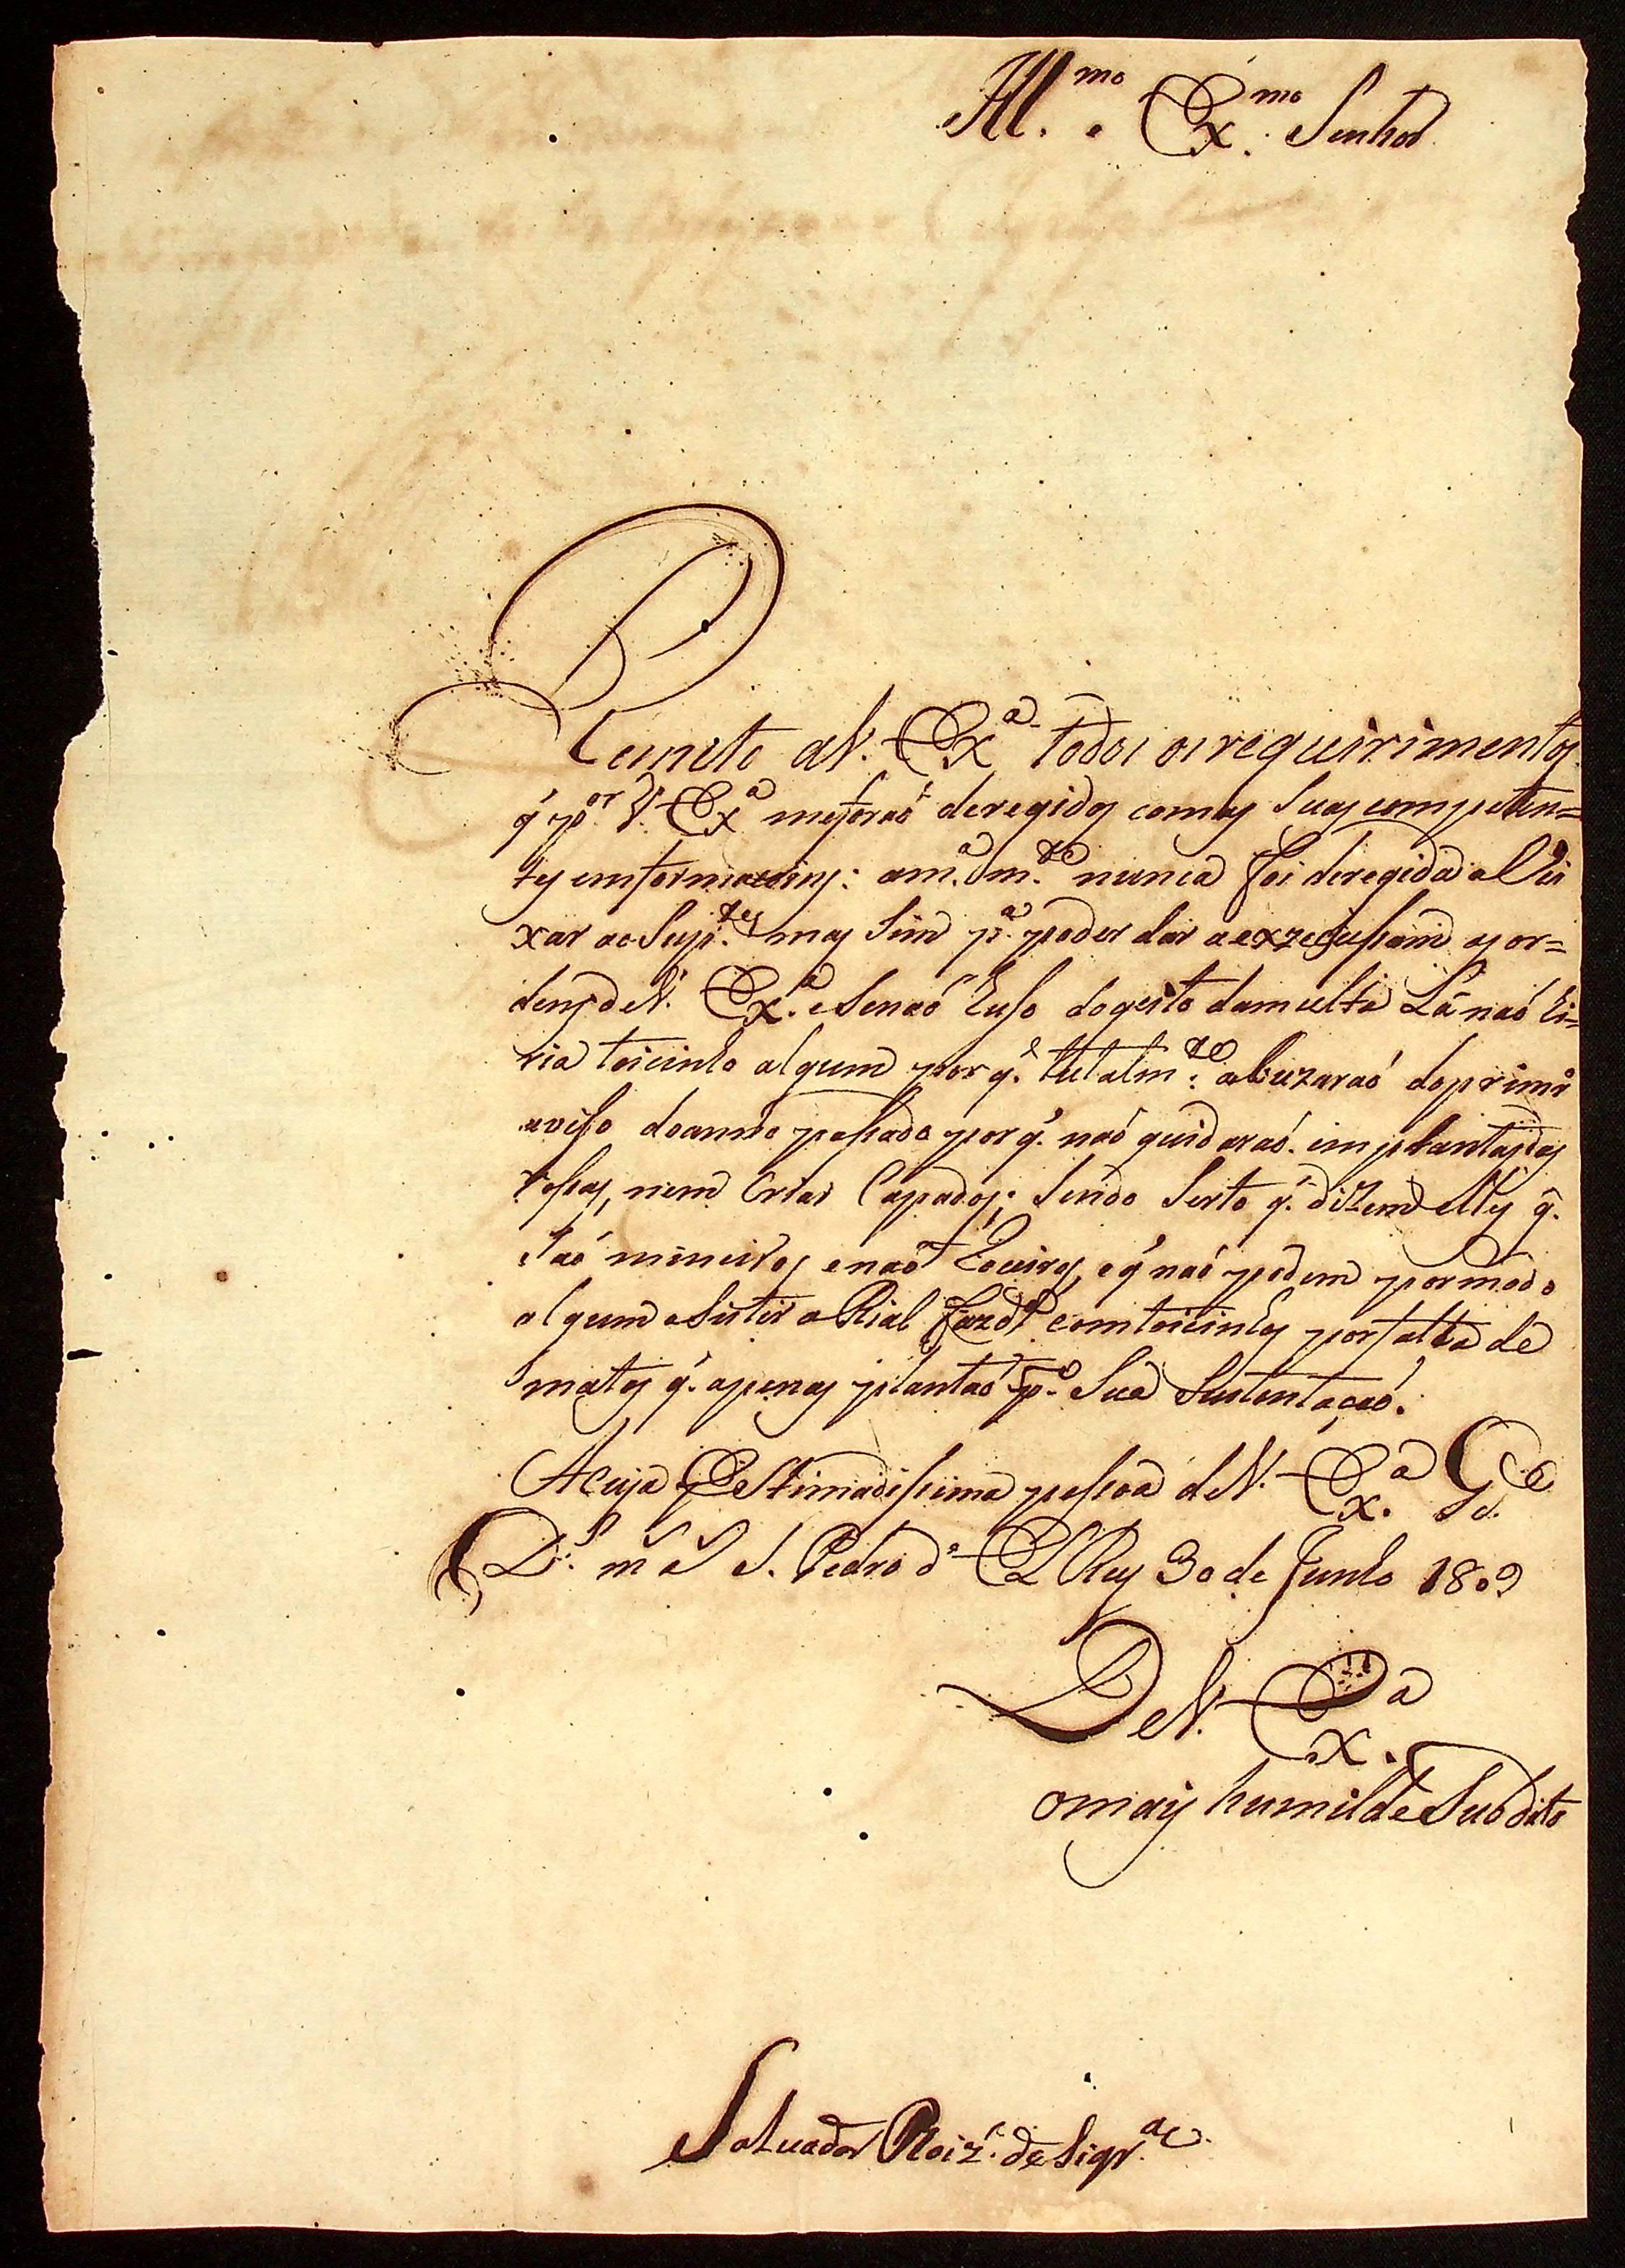 Ill.mo e Ex.mo Senhor
Remeto a V. Ex.a todos os requirimentos
q̃ por V. Ex.a me foraõ deregidos com as Suas competen=
tes emformacoins: a m.a m.te nunca foi deregida a Vi
xar ao Sup.tes mas Sim p.a poder dar a exzecusam as or=
dens de V. Ex.a e Senaõ
Lá naõ hi=
ria toicinho algum por q̃. tutalm.te abuzaraõ do primr.o
aviso do anno passado por q̃. naõ quidaraõ. em plantas das
rossas, nem Criar Capados; Sendo Serto q̃. dizem elles q̃.
Saõ mineiros e naõ roceiros, e q̃ naõ podem por modo
algum asistir a Rial Fazd.a com toicinhos por falta de
matos q̃. apenas plantaõ p.a Sua Sustentaçaõ.
A cuja Estimadissima pessoa de V. Ex.a G.de
D.s m.s a.s S. Pedro d' ElRey 30 de Junho 1809
De V. Ex.a
o mais humilde Subdito
Saluador Roiz.' de Siqr.a